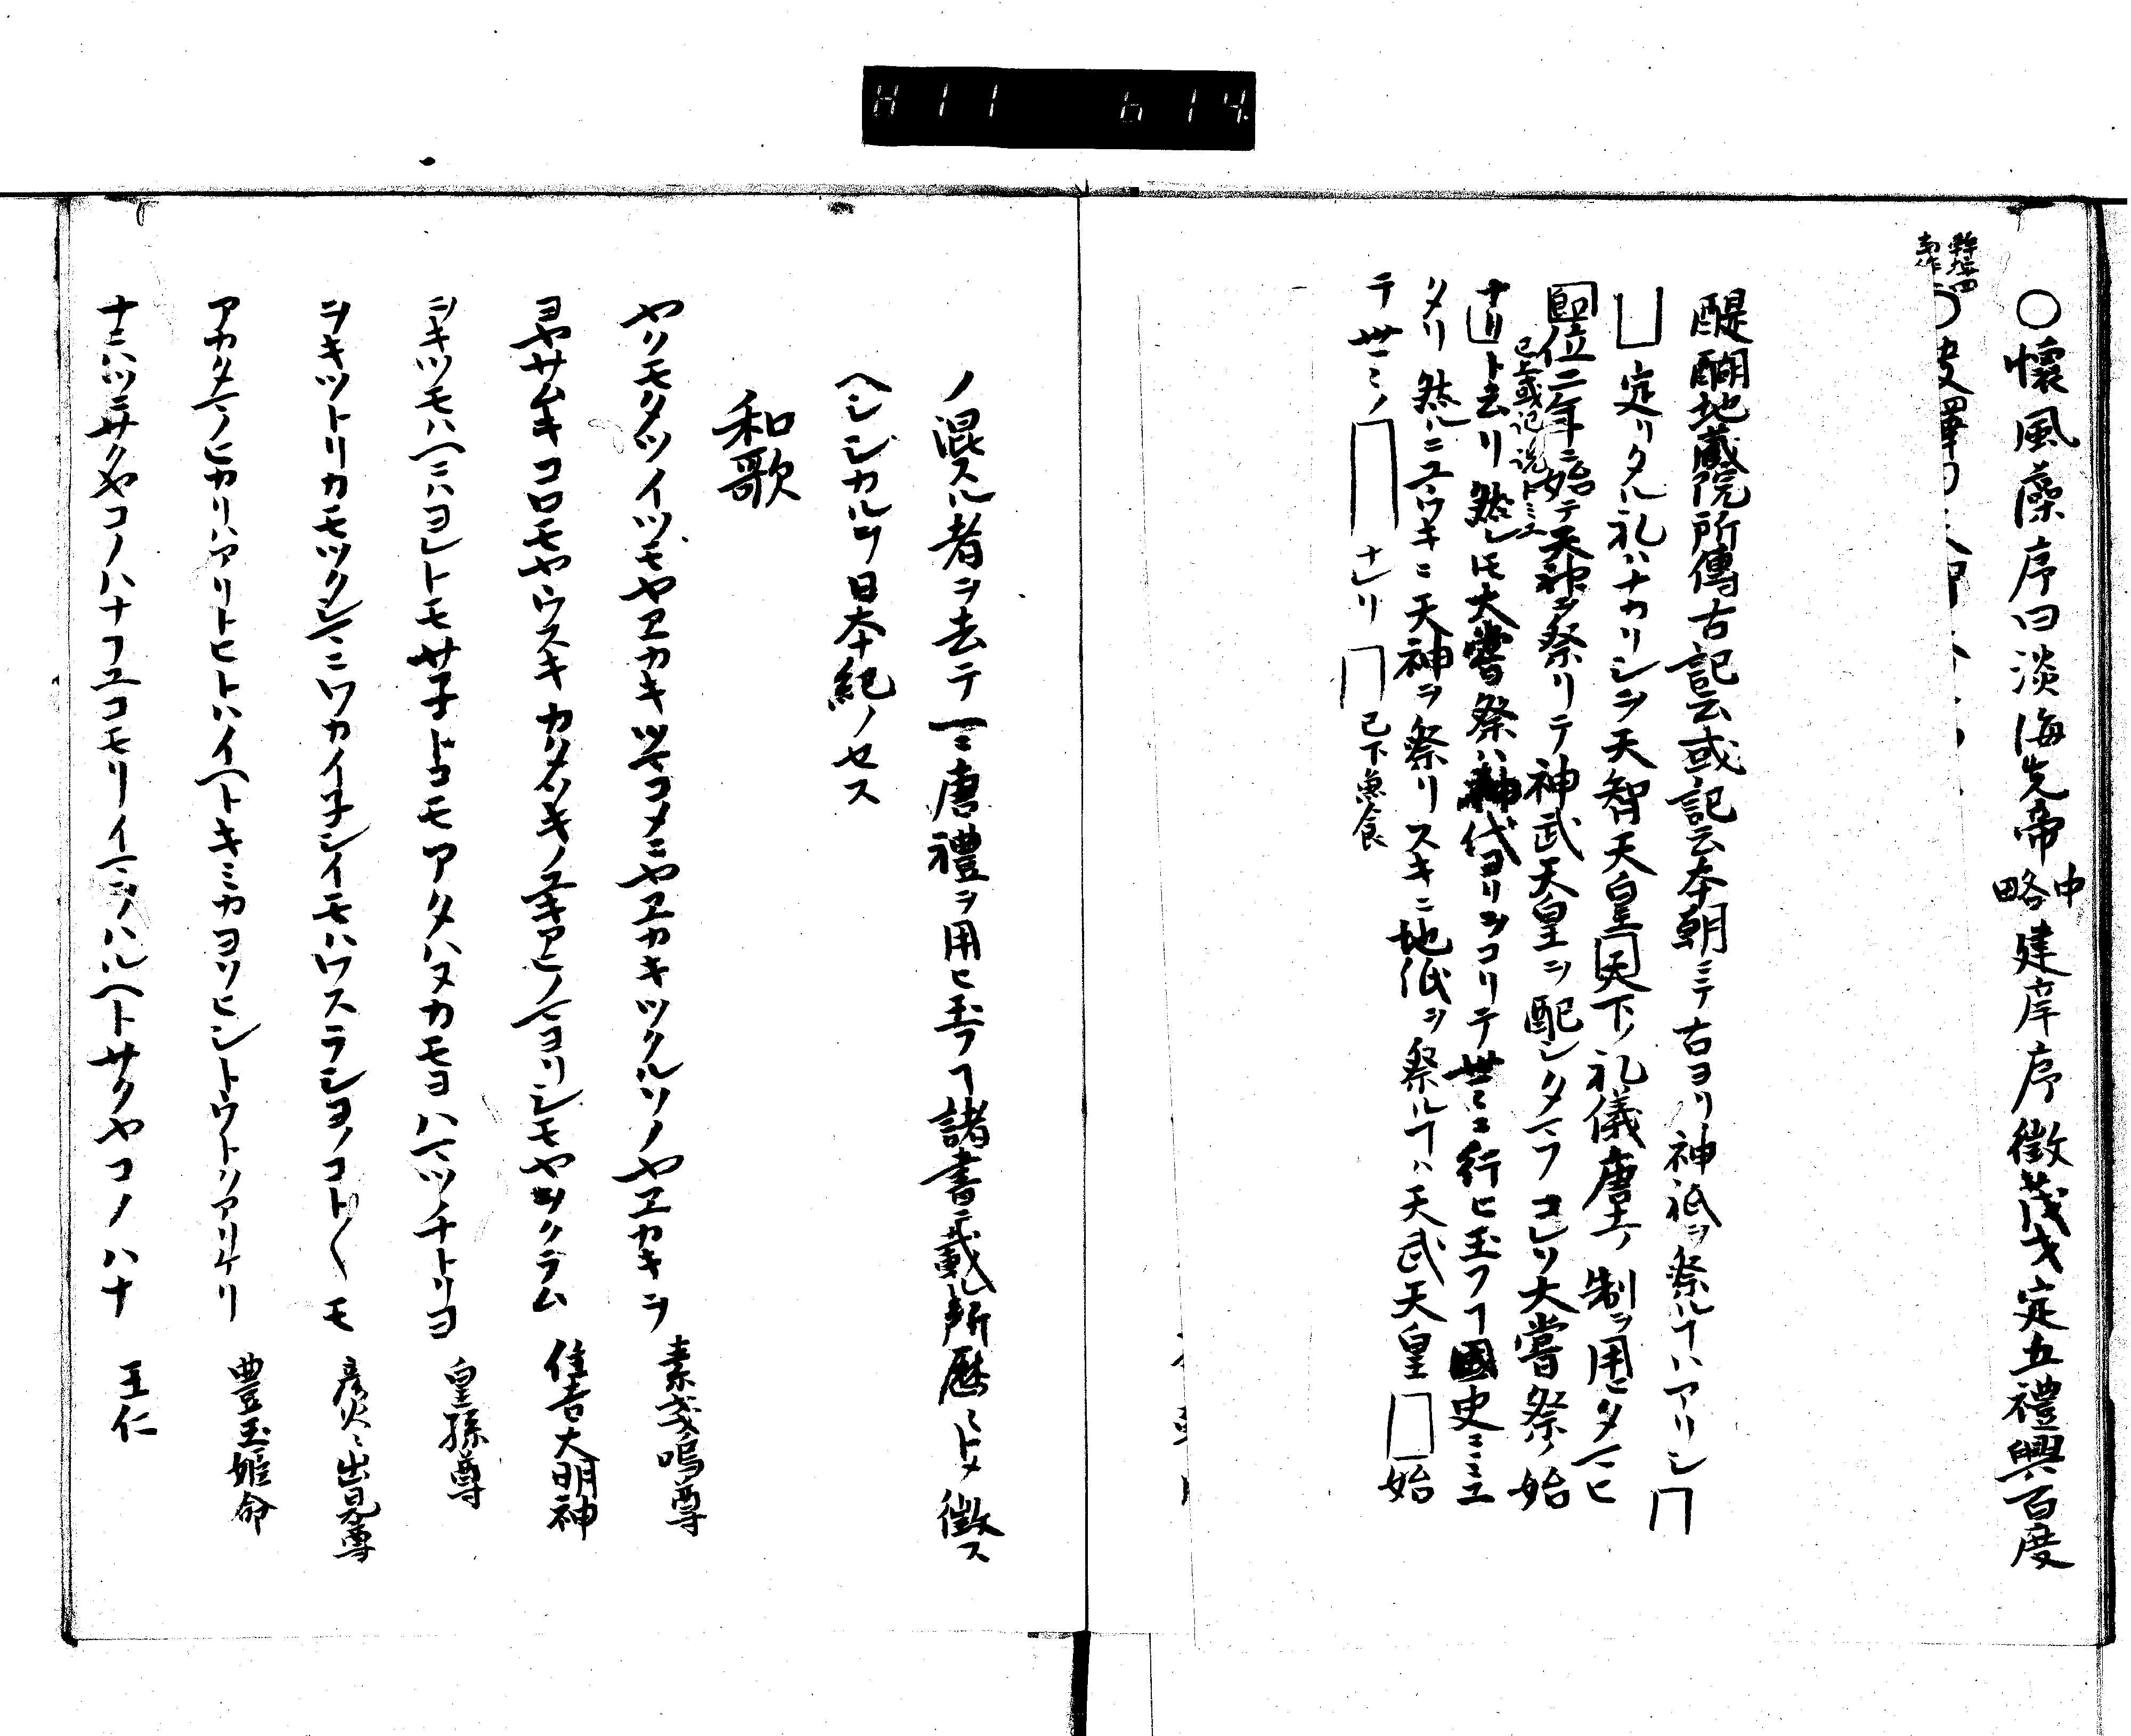 H11 614
〇懐風藻序曰淡海先帝中略建庠序徴茂才定五禮興百度
醍醐地蔵院所傳古記云或記云本朝ニテ古ヨリ神祇ヲ祭ルヿハアリシ
定リタル礼ハナカリシヲ天智天皇天下ノ礼儀唐ノ制ヲ用ヒタマヒ
即位二年ニ始テ天神ヲ祭リテ神武天皇ヲ配シタマフコレソ大嘗祭ノ始
已上或記説トミユ
ナリト去リ然レトモ大嘗祭ハ神代ヨリヲコリテ世ミニ行ヒ玉フヿ國史ニミエ
タリ然ルニユウキニ天神ヲ祭リスキニ地祇ヲ祭ルヿハ天武天皇 始
テ世ミノ ナレリ 已下魚食
ノ混スル者ヲ去テ一ニ唐禮ヲ用ヒ玉フヿ諸書ニ載ル所歴ミトメ徴ス
ヘシシカルヲ日本紀ノセス
和歌
ヤクモタツイツモヤヱカキツマコメニヤヱカキツクルソノヤヱカキヲ 素戔嗚尊
ヨヤサムキコロモヤウスキカタソキノユキアヒノマヨリシモヤヲクラム 住吉大明神
ヲキツモハヘニハヨレトモサ子トコモアタハヌカモヨハマツチトリヨ 皇孫尊
ヲキツトリカモツクシマニワカイ子シイモハワスラシヨノコト〱モ 彦火ミ出見尊
アカタマノヒカリハアリトヒトハイヘトキミカヨソヒシトウトクアリケリ 豊玉姫命
ナニハツニサクヤコノハナフユコモリイマヲハルヘトサクヤコノハナ 王仁